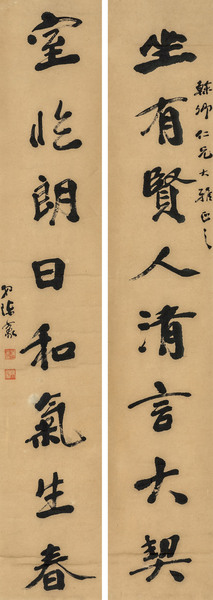 卿仁兄大雅正之
坐有賢人清言大契
室臨朗日和氣生春